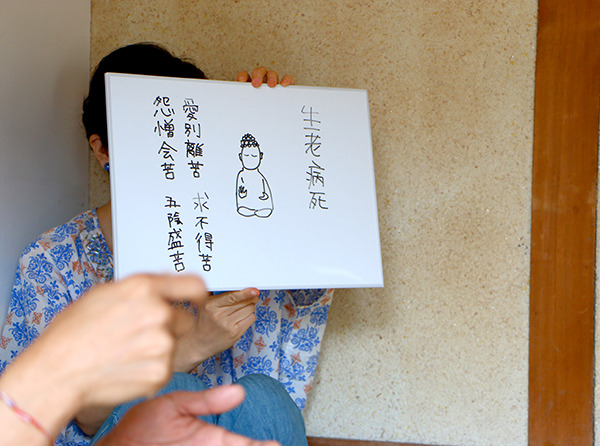 生老病死
愛別離苦
怨憎会苦
求不得苦
五陰盛苦